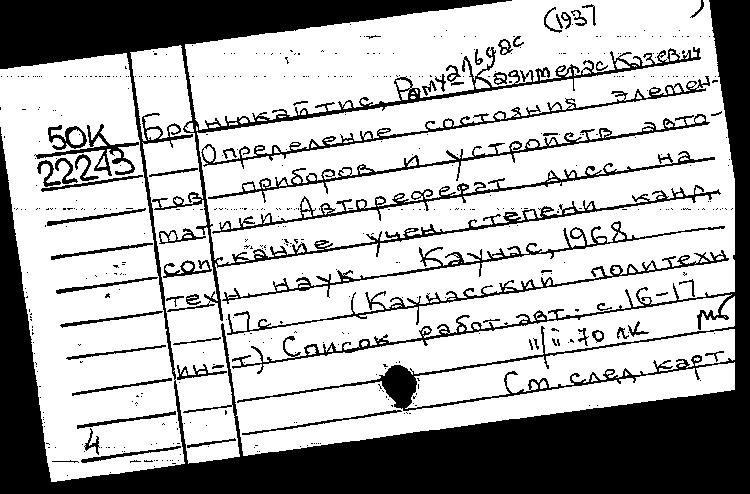 (1937 )
50К
22243
Бранюкайтис, Рамуалдас-Казимерас Казевич
Определение состояния элемен-
тов приборов и устройств авто-
матики. Автореферат дисс. на
соискание учен. степени канд.
техн. наук. Каунас, 1968.
17с. (Каунасский политехн.
ин-т). Список работ. авт.: с.16-17.
11/ii.70 лк мб
См. след. карт.
4